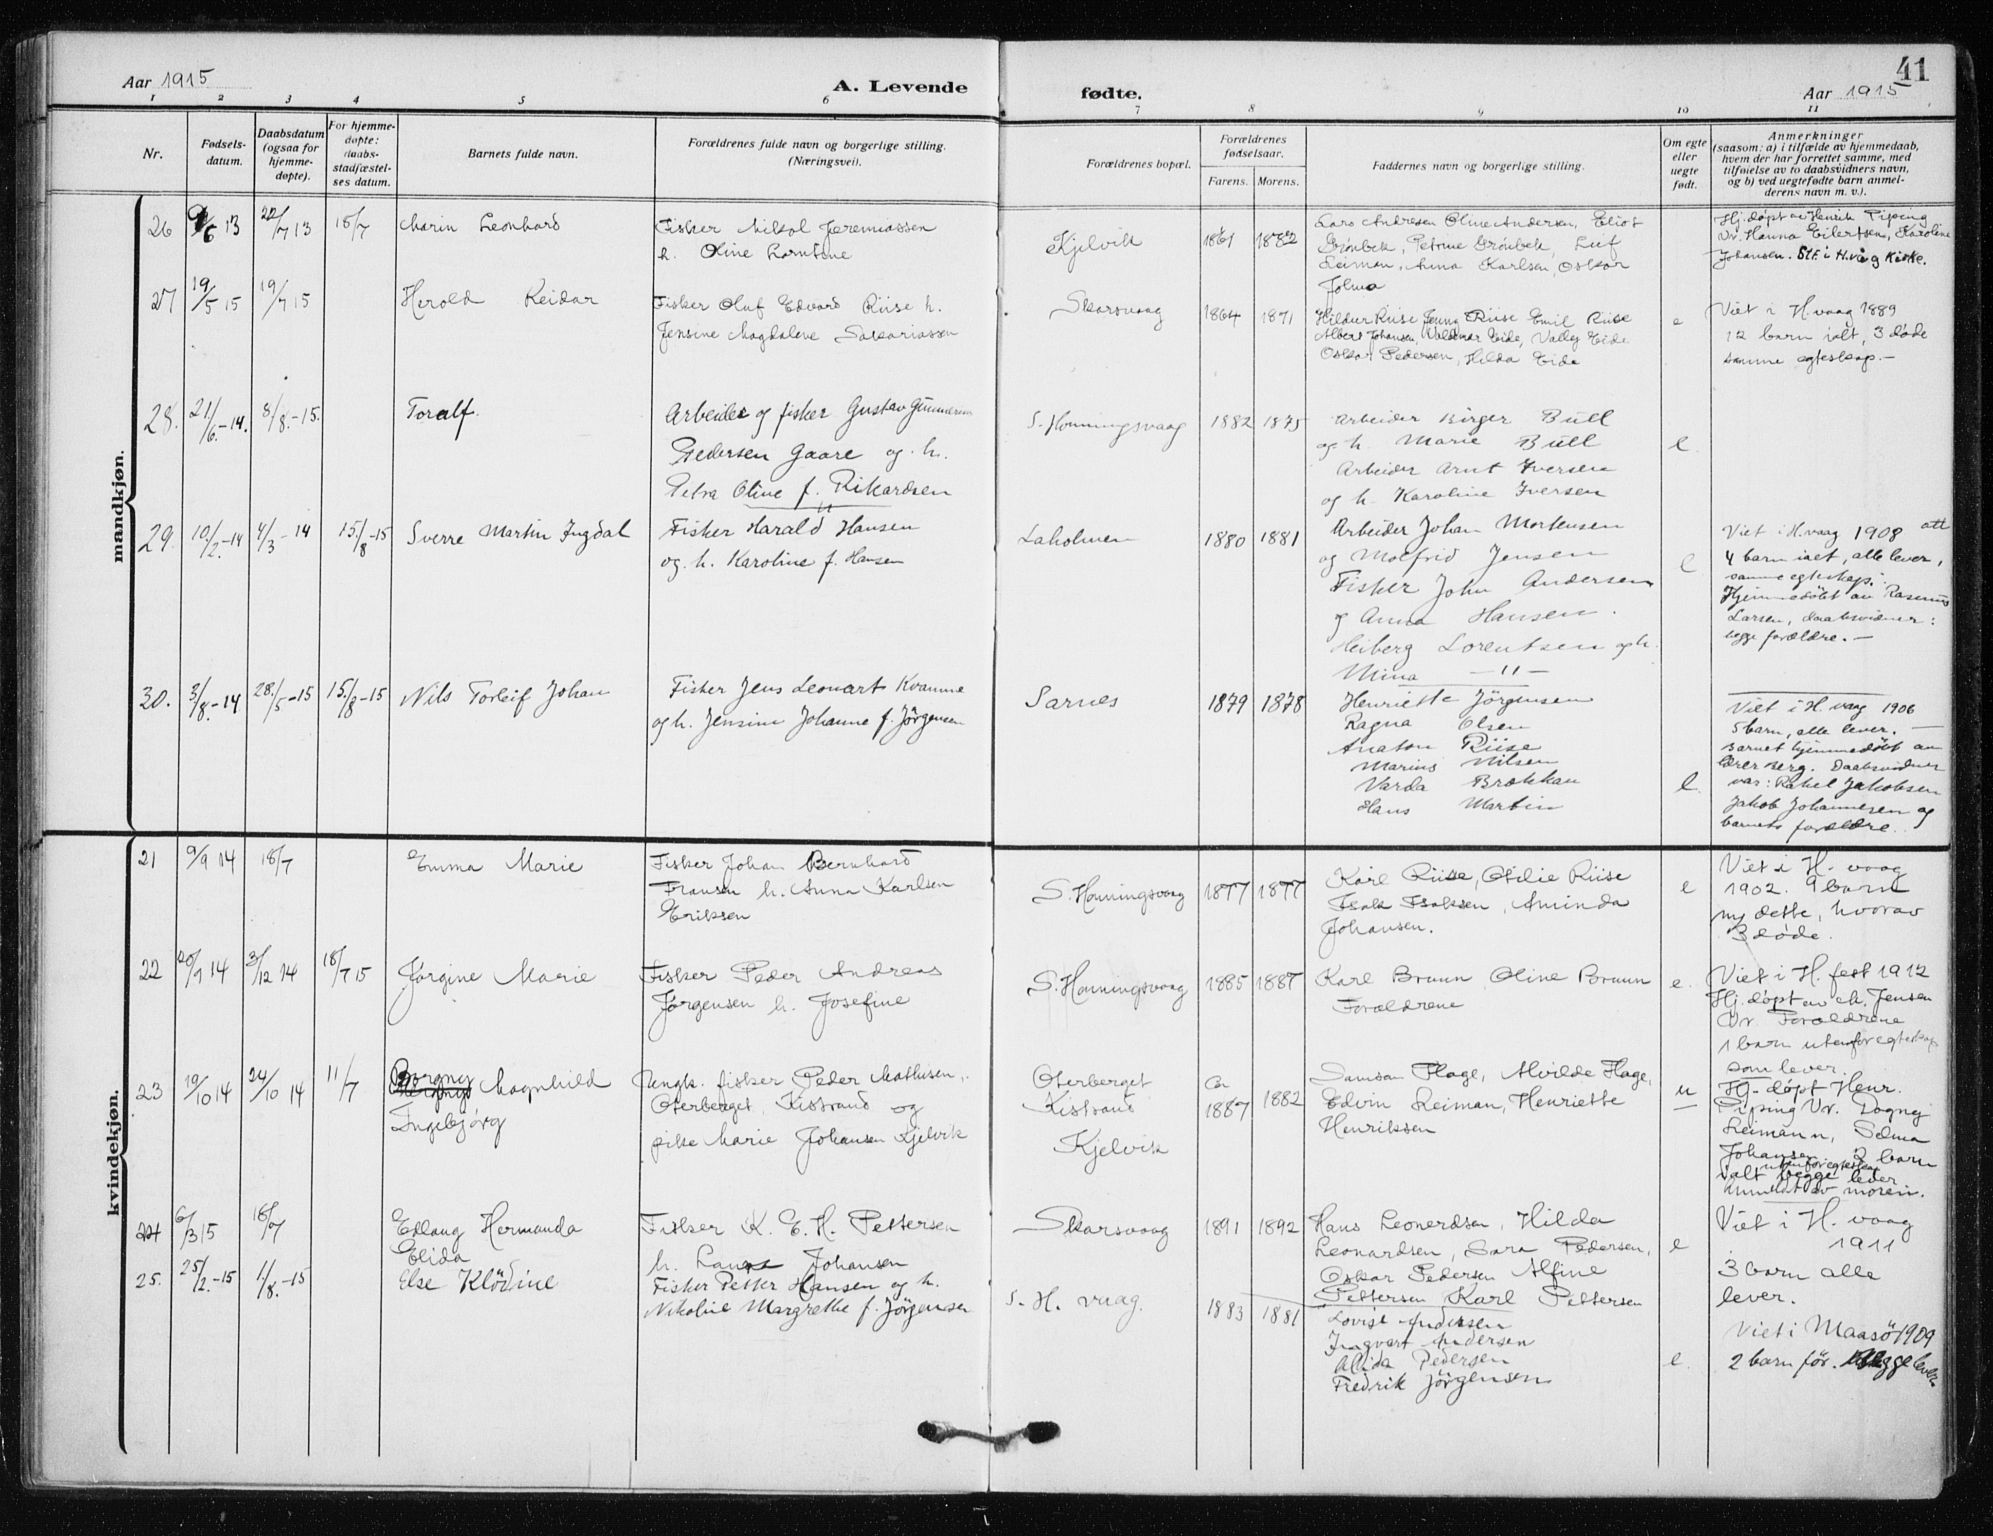 Aar 1915
A. Levende
fødte.
Aar 1915
41
1 2 3 4 5 6 7 8 9 10 11
Nr.
Fødsels-
datum.
Daabsdatum
(ogsaa for
hjemme-
døpte).
For hjemme-
døpte:
daabs-
stadfæstel-
ses datum.
Barnets fulde navn.
Forældrenes fulde navn og borgerlige stilling.
(Næringsvei).
Forældrenes bopæl.
Forældrenes
fødselsaar.
Farens. Morens.
Faddernes navn og borgerlige stilling.
Om egte
eller
uegte
født.
Anmerkninger
(saasom: a) i tilfælde av hjemmedaab,
hvem der har forrettet samme, med
tilføielse av to daabsvidners navn,
og b) ved uegtefødte barn anmel-
derens navn m. v.).
mandkjøn.
26 /6 13 22/7 13 18/7
Marin Leonhard
Fisker Nikol Jeremiassen
h. Oline Larntine
Kjelvik
1861 1882
Lars Andresen Oline Andersen, Eliot
Grönbek, Petrine Grönbek, Luf
Leiman, Anna Karlsen, Oskar
Jolma
Hj. døpt av Henrik Piping
Vr. Hanna Eilertsen, Karoline
Johansen. Stf. i H.våg Kirke.
27 19/5 15 19/7 15
Herold Reidar
Fisker Oluf Edvard Riise h.
Jensine Magdalene Sakariassen
Skarsvaag
1864 1871
Hildur Riise Jenny Riise Emil Riise
Albert Johansen, Valdemar Eide, Valley Eide
Oskar Pedersen, Hilda Eide
e
Viet i H. vaag 1889
12 barn ialt, 3 døde
samme egteskap.-
28. 21./6.-14. 8/8.-15.
Toralf.
Arbeider og fisker Gustav
Pedersen Gaare og h.
Petra Oline f. Rikardsen
S. Honningsvaag
1882 1875
Arbeider Birger Bull
og h. Marie Bull
Arbeider Arnt Iversen
og h. Karoline Iversen
e.
29. 10./2.-14 4/3-14 15./8-15
Sverre Martin Ingdal
Fisker Harald Hansen
og. h. Karoline f. Hansen
Laholmen
1880 1881
Arbeider Johan Mortensen
og Molfrid Jensen
Fisker John Andersen
og Anna Hansen.
Heiberg Lorentsen og h.
Mina —11—
e
Viet i H.vaag 1908 att
4 barn ialt, alle lever,
samme egteskap.
Hjemmedöbt av Rasmus
Larsen, daabsvidner:
begge forældre.—
30. 3/8.-14 28./5-15 15./8-15
Nils Torleif Johan
Fisker Jens Leonart Kvamme
og h. Jensine Johanne f. Jörgensen
Sarnes
1879 1878
Henriette Jörgensen
Ragna Olsen
Anaton Riise
Marius Nilsen
Varda Brokkan
Hans Martin
e.
Viet i H. vaag 1906
5 barn, alle lever.—
Barnet hjemmedöbt av
lærer Berg. Daabsvidner
var: Rakel Jakobsen
Jakob Johannesen og
barnets forældre.
kvindekjøn.
21 9/9 14 18/7
Emma Marie
Fisker Johan Bernhard
Fransen h. Anna Karlsen
Eriksen
S. Honningsvaag
1877 1877
Karl Riise, Otilie Riise
Isak Isaksen, Aminda
Johansen.
e
Viet i H. vaag
1902. 9 barn
dette, hvorav
3 døde.
22 20/7 14 3/12 14 18/7 15
Jørgine Marie
Fisker Peder Andreas
Jørgensen h. Josefine
S. Honningsvaag
1885 1887
Karl Bruun Oline Bruun
Forældrene
e.
Viet i H. fest 1912
Hj. døpt av Jensen
Vr. Forældrene
1 barn utenfor egteskap
som lever.
23 19/10 14 24/10 14 11/7
Borgny Magnhild
Ingebjørg
Ungk. fisker Peder Mathisen,
Oterberget, Kistrand og
pike Marie Johansen Kjelvik
Oterberget
Kistrand
Kjelvik
Ca
1887 1882
Samson Flage, Alvilde Flage,
Edvin Leiman, Henriette
Henriksen
u
Hj. døpt Henr.
Piping Vr. Dagny
Leimann, Selma
Johansen 2 barn
ialt utenfor egteskap
begge lever
Anmeldt av moren.
24 6/3 15 18/7
Edlaug Hermanda
Elida
Fisker K. E. H. Pettersen
h. Johansen
Skarsvaag
1891 1892
Hans Leonerdsen, Hilda
Leonardsen, Sara Pedersen,
Oskar Pedersen Alfine
Pettersen Karl Pettersen
e
Viet i H. vaag
1911
3 barn alle
lever.
25. 25/2.-15 1./8.-15
Else Klödine
Fisker Petter Hansen og h.
Nikoline Margrethe f. Jörgensen
S. H. vaag.
1883 1881
Lovise Andersen
Ingvart Andersen
Alida Pedersen
Fredrik Jörgensen
e.
Viet i Maasö 1909
2 barn för. begge lever.